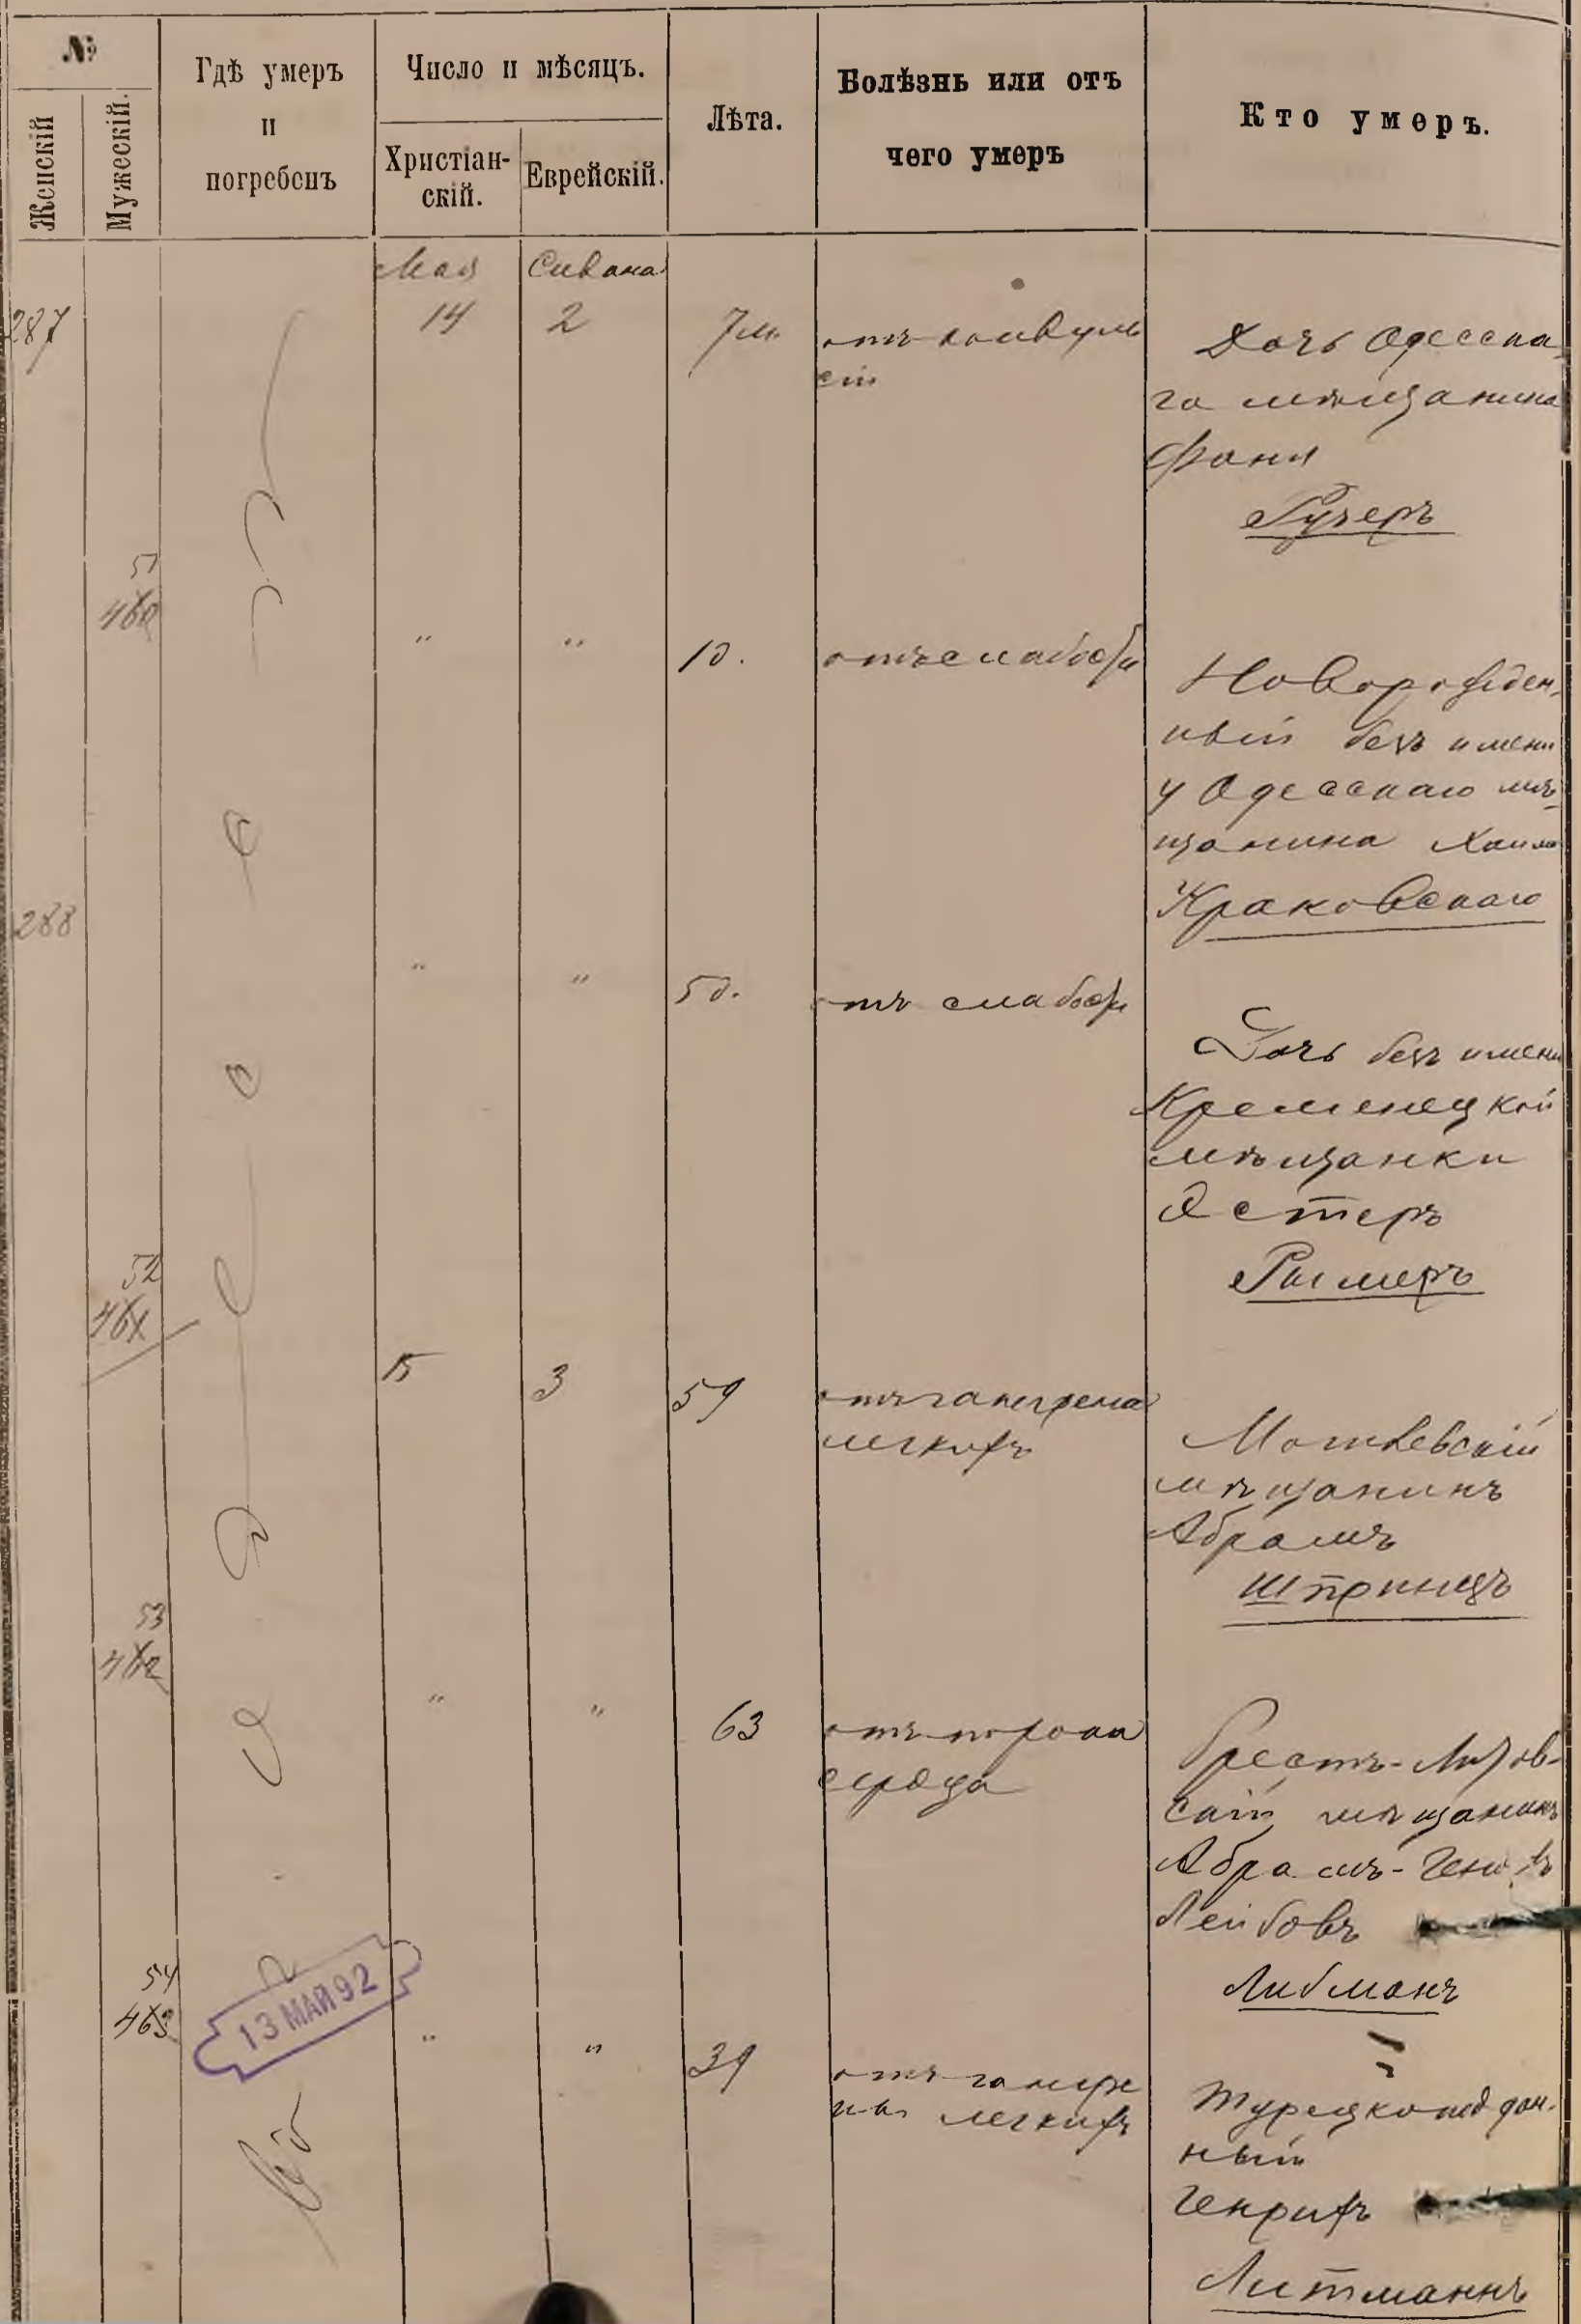 №
Женскій
Мужескій.
Гдѣ умеръ
и
погребенъ
Число и мѣсяцъ.
Христіан-
скій.
Еврейскій.
Лѣта.
Болѣзнь или отъ
чего умеръ
Кто умеръ.
Мая Сивана
287 14 2 7 м. отъ конвуль
сій
Дочь Одесска-
го мѣщанина
Фаня
Ручеръ
51
460 " " 1 д. отъ слабости
Новорожден-
ный безъ имени
у Одесскаго мѣ-
щанина Хаима
Краковскаго
288 " " 5 д. отъ слабости
Дочь безъ имени
Кременецкой
мѣщанки
Эстеръ
Рымеръ
52
461 15 3 59 отъ гангрена
легкихъ
мѣщанинъ
Абрамъ
Штринцъ
53
462 " " 63 отъ порока
сердца
Брестъ-Литов-
скій мѣщанинъ
Абрамъ-
Лейбовъ
Либманъ
54
463 " " 39 отъ гангре
ны легкихъ
Турецкоподдан-
ный
Генрихъ
Литманнъ
Въ Одессѣ
13 МАЙ 92